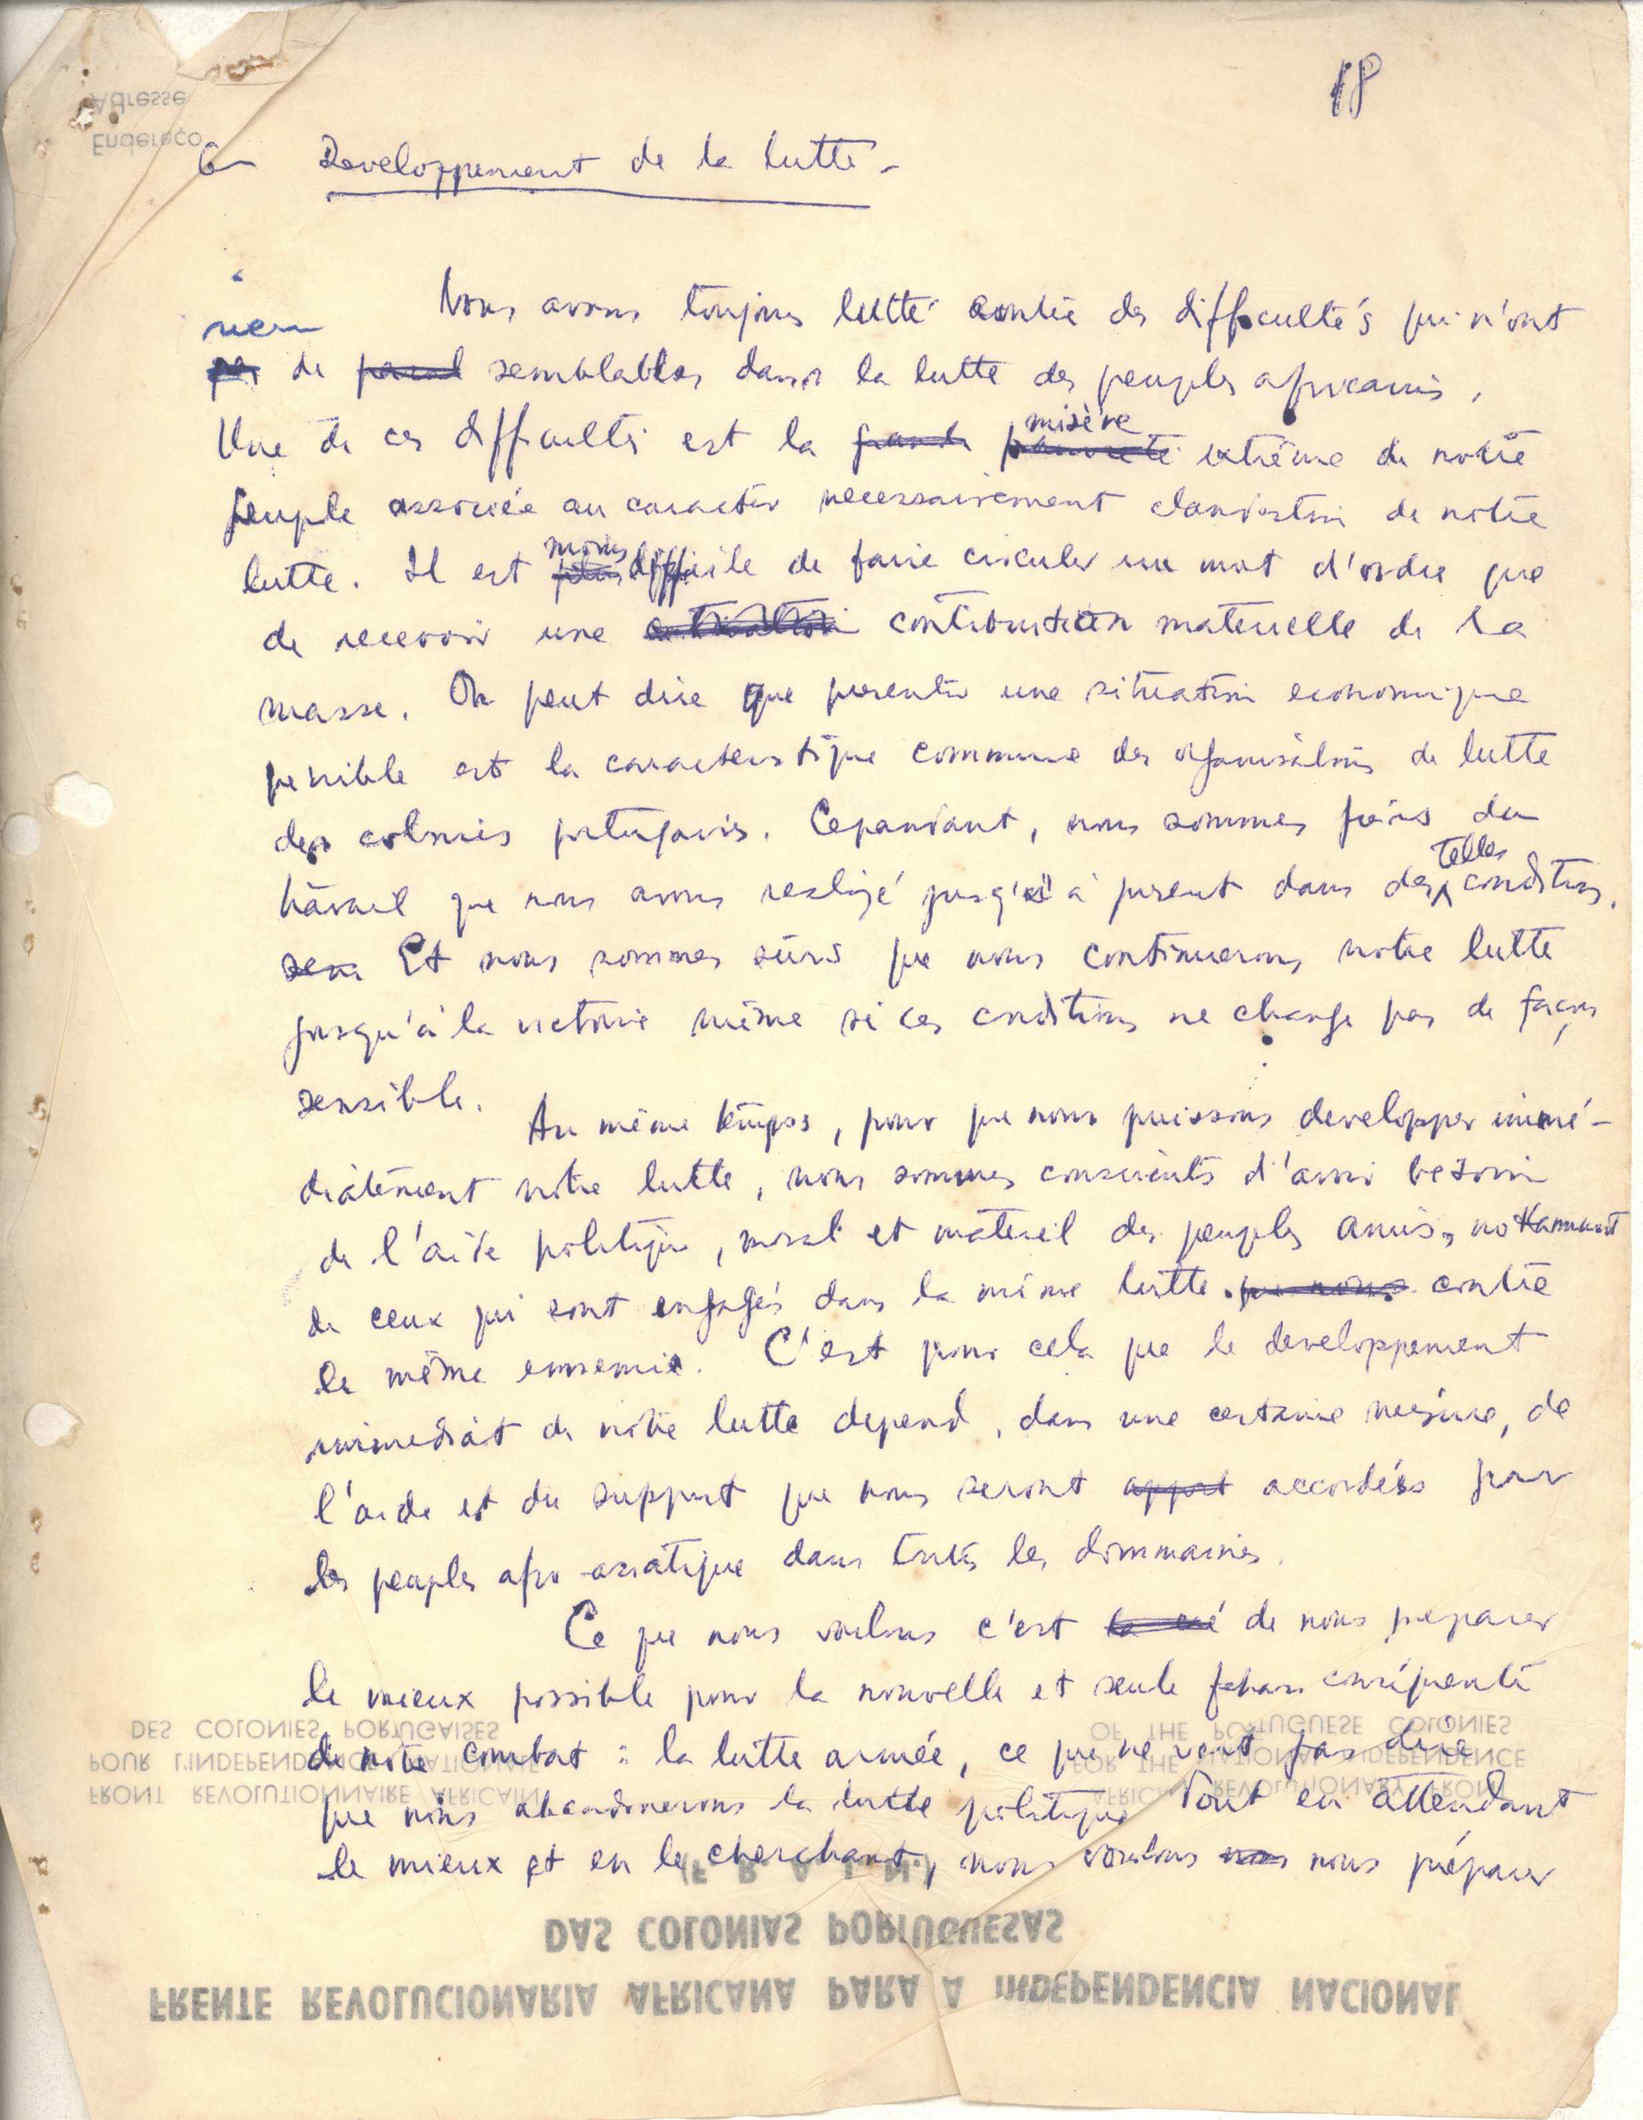 18
Adresse
Endereço
6- Developpement de la lutte -
Nous avons toujours lutté contre des difficultés qui n'ont
rien
pas de pareil semblables dans la lutte des peuples africains.
misère
Une de ces difficultés est la grande pauvreté extrême de notre
peuple associée au caractère necessairement clandestin de notre
moins
lutte. Il est plus difficile de faire circuler un mot d'ordre que
de recevoir une contribution materielle de la
masse. On peut dire que presenter une situation economique
penible est la caracteristique commune des organisations de lutte
des colonies portugaises. Cependant, nous sommes fiers du
telles
travail que nous avons realisé jusqu'à present dans des conditions.
Et nous sommes sûrs que nous continuerons notre lutte
jusqu'à la victoire même si ces conditions ne change pas de façon
sensible.
Au même temps, pour que nous puissons developper immé-
diatement notre lutte, nous sommes conscients d'avoir besoin
de l'aide politique, moral et materiel des peuples amis, notamment
de ceux qui sont engagés dans la même lutte que nous contre
le même ennemie. C'est pour cela que le developpement
immediat de notre lutte depend, dans une certaine mesure, de
l'aide et du support que nous seront apport accordés par
les peuples afro-asiatique dans touts les dommaines.
Ce que nous voulons c'est de nous preparer
le mieux possible pour la nouvelle et seule conséquente
de notre combat : la lutte armée, ce que ne veut pas dire
que nous abandonerons la lutte politique. Tout en attendant
le mieux et en le cherchant, nous voulons nous nous préparer
DES COLONIES PORTUGAISES
POUR L'INDEPENDANCE NATIONALE
FRONT REVOLUTIONNAIRE AFRICAIN
OF THE PORTUGUESE COLONIES
FOR THE NATIONAL INDEPENDENCE
AFRICAN REVOLUTIONARY FRONT
(F. R. A. I. N.)
DAS COLONIAS PORTUGUESAS
FRENTE REVOLUCIONARIA AFRICANA PARA A INDEPENDENCIA NACIONAL